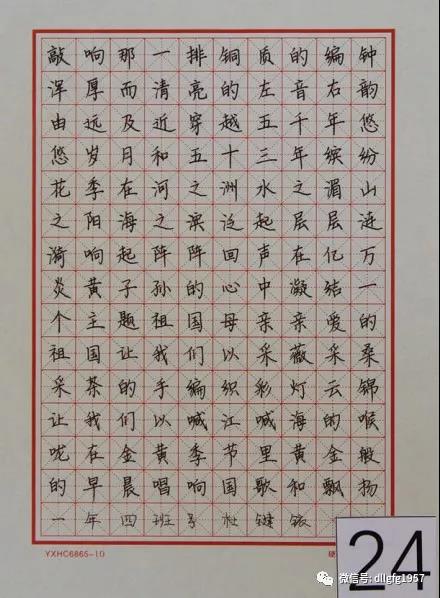 敲响那一排铜质的编钟
浑厚而清亮的左音右韵
由远及近穿越五千年悠
悠岁月和五十三年缤纷
花季在河之洲水之湄山
之阳海之滨泛起层层涟
漪响起阵阵回声在亿万
炎黄子孙的心中凝结一
个主题祖国母亲亲爱的
祖国让我们以采薇采桑
采茶的手编织彩灯云锦
让我们以喊江喊海的喉
咙在金黄季节里黄金般
的早晨唱响国歌和飘扬
一年四班
YXHC6865-10 硬
24
微信号: dllgfg1957